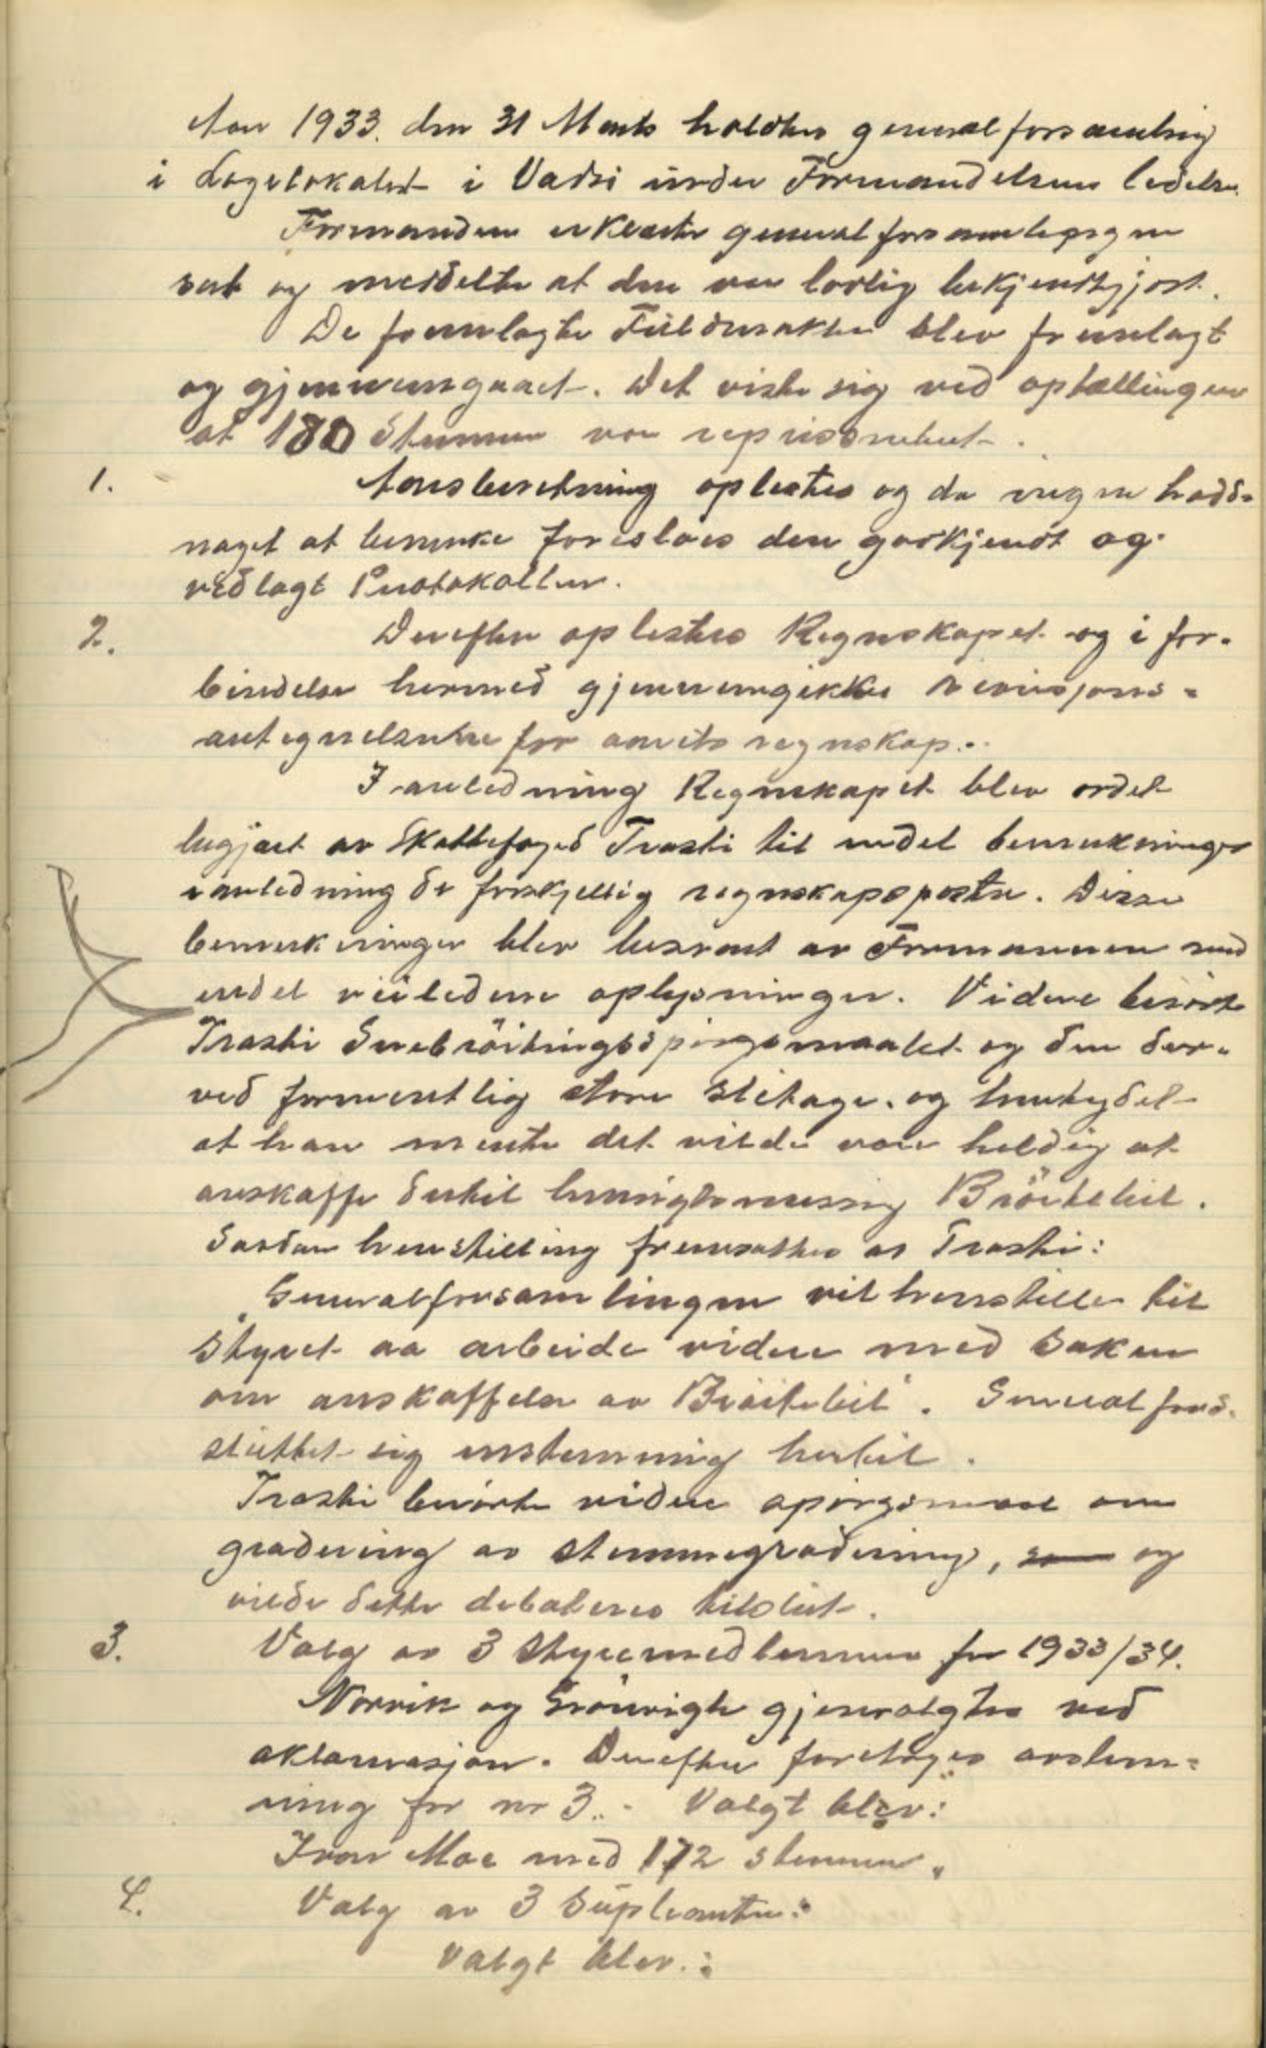 Aar 1933. den 31 Marts holdtes generalforsamling
i Logelokalet i Vadsö under Formandens ledelse.
Formanden erklærte generalforsamlingen
sat og meddelte at den var lovlig bekjendtgjort.
De fremlagte Fuldmakter blev fremlagt
og gjennemgaaet. Det viste sig ved optællingen
at 180 Stemmer var repressentert.
1. Aarsberetning oplestes og da ingen hadde
noget at bemerke foresloes den godkjendt og
vedlagt Protokollen.
2. Derefter oplestes Regnskapet og i for-
bindelse hermed gjennemgikkes revisjons-
antegnelserne for aarets regnskap.
I anledning Regnskapet blev ordet
begjært av Skattefoged Trasti til endel bemerkninger
i anledning de forskjellig regnskapsposter. Disse
bemerkninger blev besvart av Formannen med
endel veiledene oplysninger. Videre berörte
Trasti Snebröitningsspörgsmaalet og den der-
ved formentlig store slitage. og hentydet
at han mente det vilde være heldig at
anskaffe dertil hensigtsmessig Bröitebil.
Saadan henstilling fremsattes av Trasti:
"Generalforsamlingen vil henstille til
Styret aa arbeide videre med saken
om anskaffelse av Bröitebil". Generalfors.
sluttet sig enstemmig hertil.
Trasti berörte videre spörgsmaal om
gradering av stemmegradering, og
vilde dette debateres tilslut.
3. Valg av 3 Styremedlemmer for 1933/34.
Norvik og gjenvalgtes ved
aklamasjon. Derefter foretoges avstem-
ning for nr 3. - Valgt blev:
Ivar Moe med 172 stemmer.
4. Valg av 3 Supleanter:
Valgt blev: